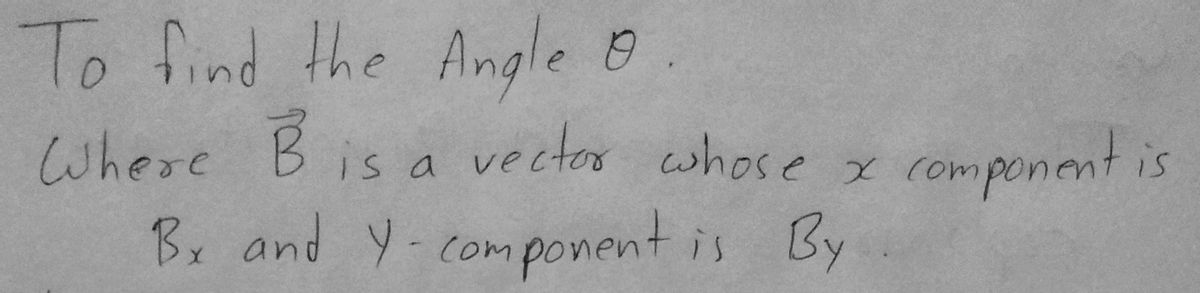 To find the Angle θ.
Where B⃗ is a vector whose x component is
Bx and y-component is By.